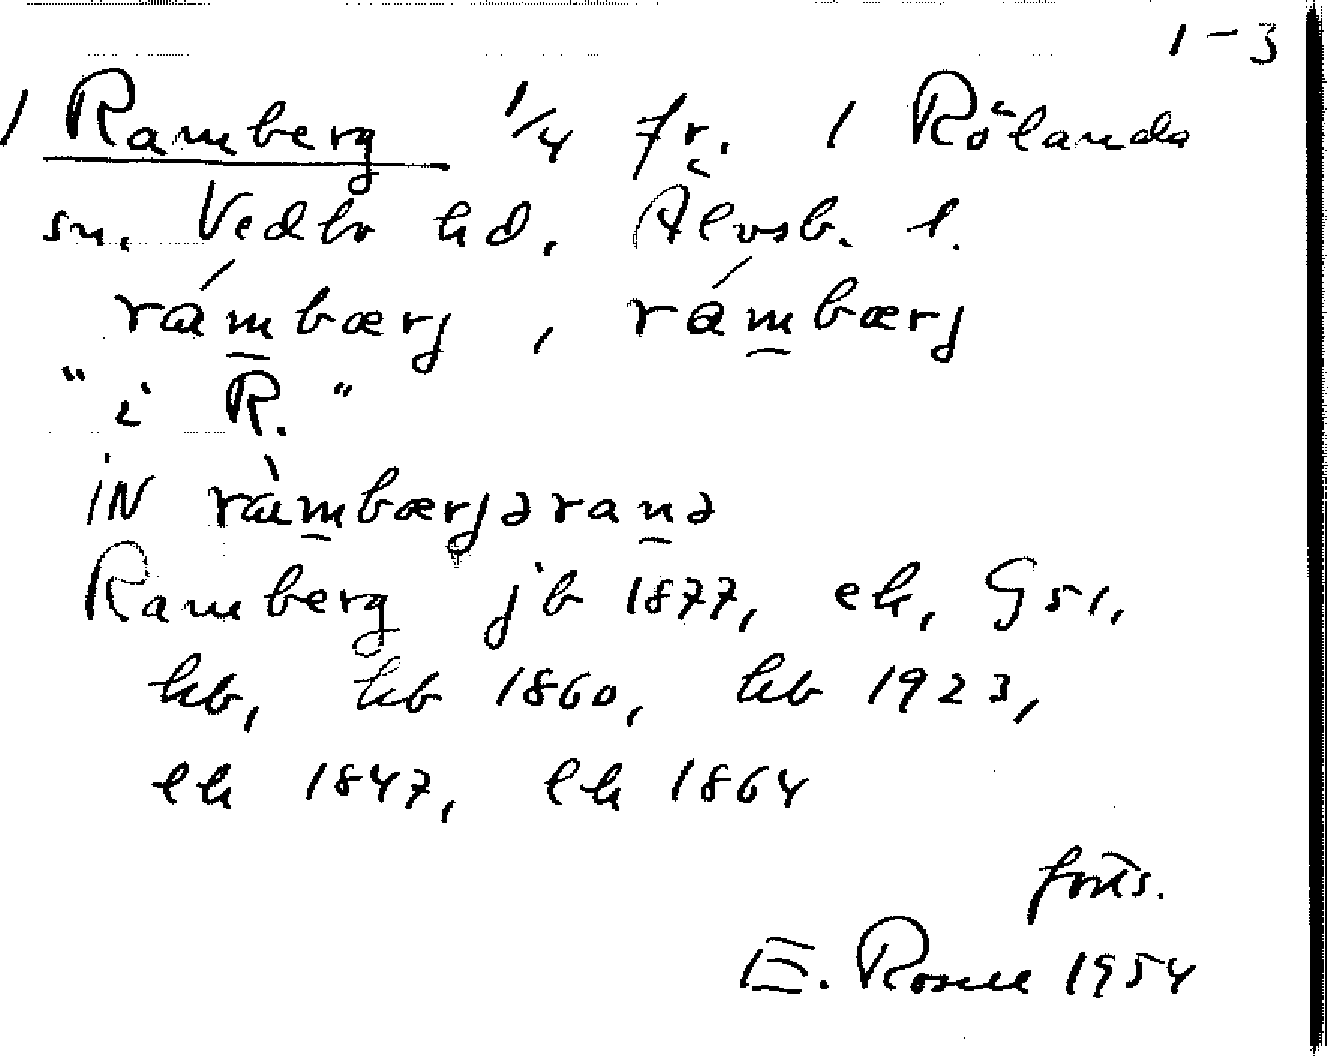 1-3
1 Ramberg 1/4 fr. 1 Rölanda
sn. Vedbo hd, Älvsb. l.
rámbærj, rámbærj
"i R."
iN ràmbærjəranə
Ramberg jb 1877, ek, G51,
kb, hb 1860, kb 1923,
ek 1847, lk 1864
forts.
E. Rosell 1954